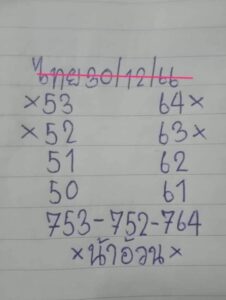 ไทย 30/12/66
×53 64×
×52 63×
51 62
50 61
753-752-764
×น้าอ้วน×